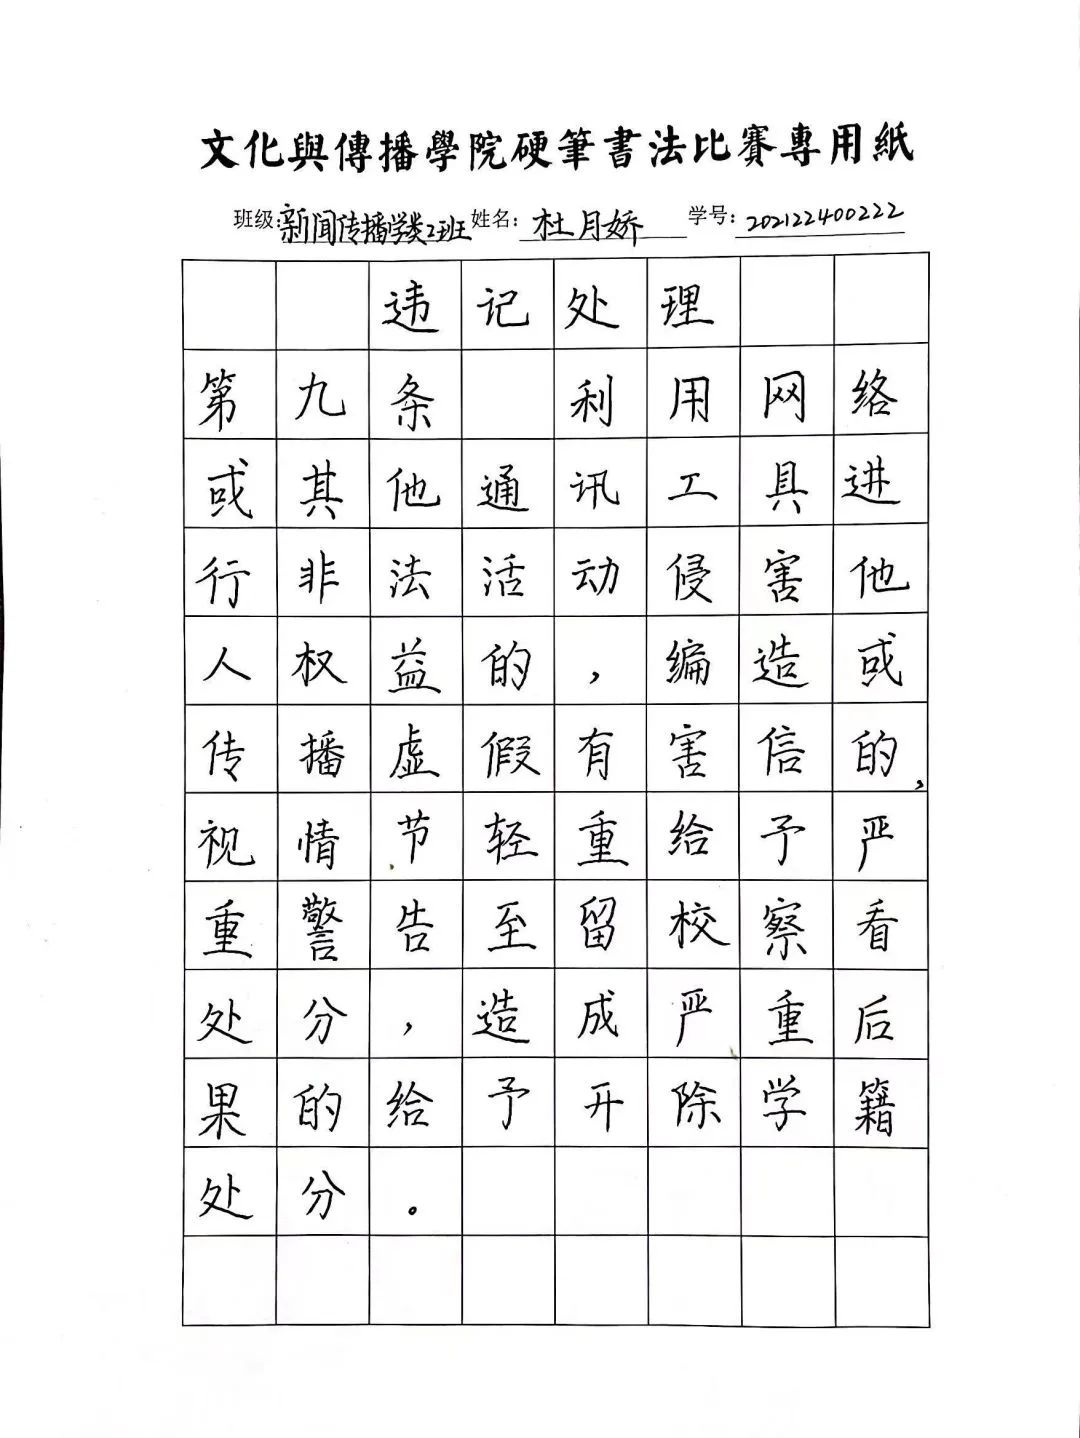 文化與傳播學院硬筆書法比賽專用紙
班级:新闻传播学类2班 姓名:杜月娇 学号:202122400222
违记处理
第九条 利用网络
或其他通讯工具进
行非法活动侵害他
人权益的,编造或
传播虚假有害信的,
视情节轻重给予严
重警告至留校察看
处分,造成严重后
果的给予开除学籍
处分。